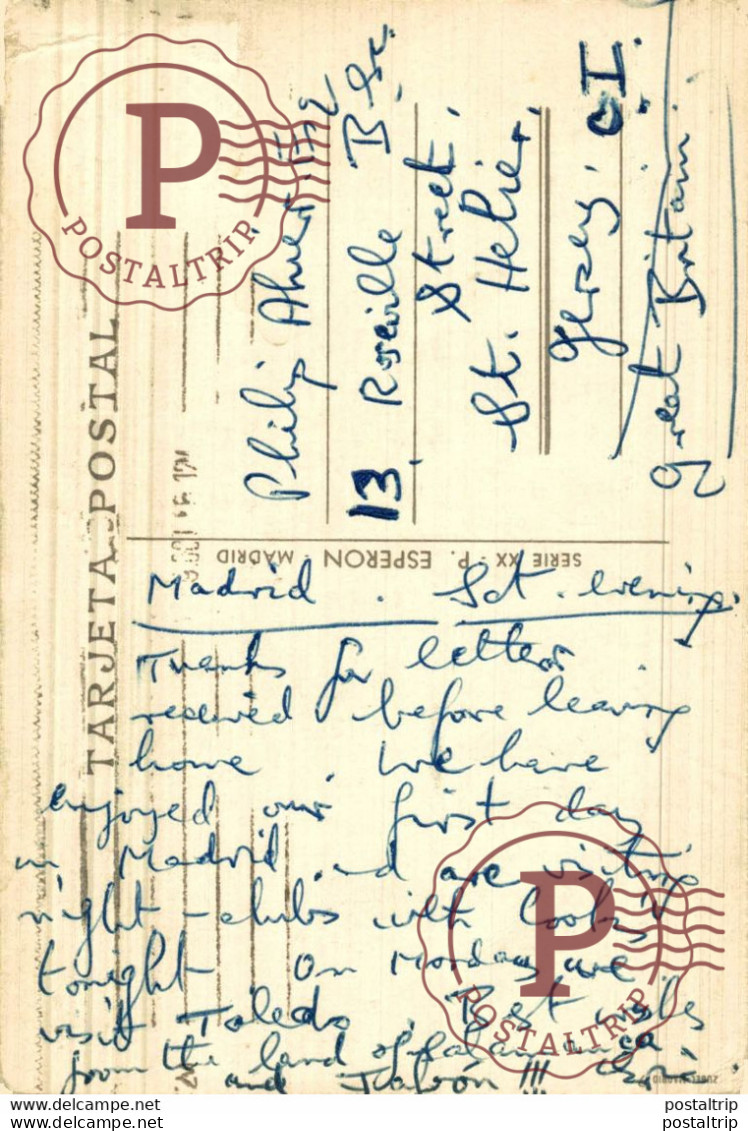 TARJETA POSTAL
Philip
13 Roseville
Street.
St. Helier,
Jersey. C I.
Great Britain.
SERIE XX - P. ESPERON - MADRID
Madrid. Sat. evening.
Thanks for letter
received before leaving
home. We have
enjoyed our first day
in Madrid and are visiting
night-clubs with Cooks
tonight On Monday we
visit Toledo. Best wishes
from the land of
and !!!
P
POSTALTRIP
P
POSTALTRIP
postaltrip
postaltrip
postaltrip
postaltrip